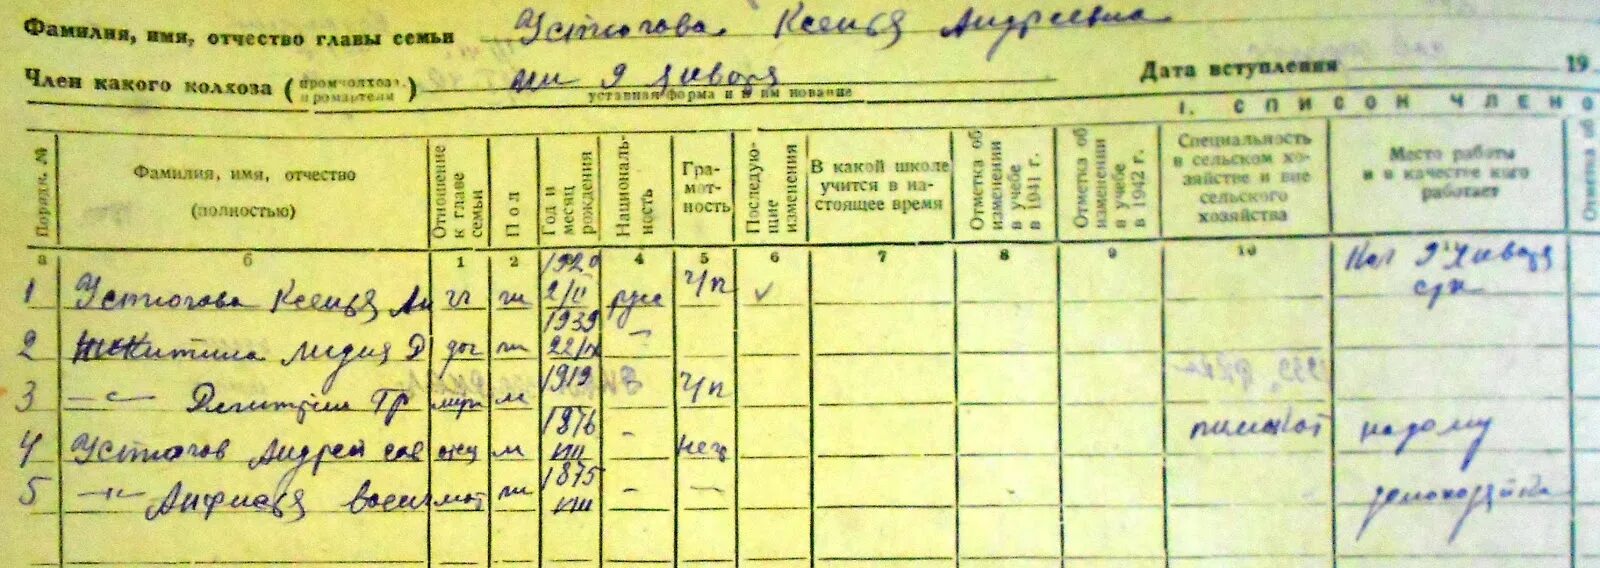 Фамилия, имя, отчество главы семьи Устюгова Ксенья Андреевна
Член какого колхоза (промколхоза, промартели) им 9 января Дата вступления 19
уставная форма и наименование
I. СПИСОК ЧЛЕНО
Порядк. №
Фамилия, имя, отчество (полностью)
Отношение к главе семьи
Пол
Год и месяц рождения
Националь- ность
Гра- мот- ность
Последую- щие изменения
В какой школе учится в на- стоящее время
Отметка об изменении в учебе в 1941 г.
Отметка об изменении в учебе в 1942 г.
Специальность в сельском хо- зяйстве и вне сельского хозяйства
Место работы и в качестве кого работает
Отметка об
а б 1 2 3 4 5 6 7 8 9 10 11
1 Устюгова Ксенья Ан гл ж 1920 2/II русс ч/п ✓ Кол 9 Января
2 Никитина Лидия Д доч ж 1939 22/IX —
3 —«— Дмитрий Гр муж м 1919 ч/п
4 Устюгов Андрей Сав отец м 1876 - негр пимокат на дому
5 —«— Анфисья Васил мат ж 1875 - — домохозяйка